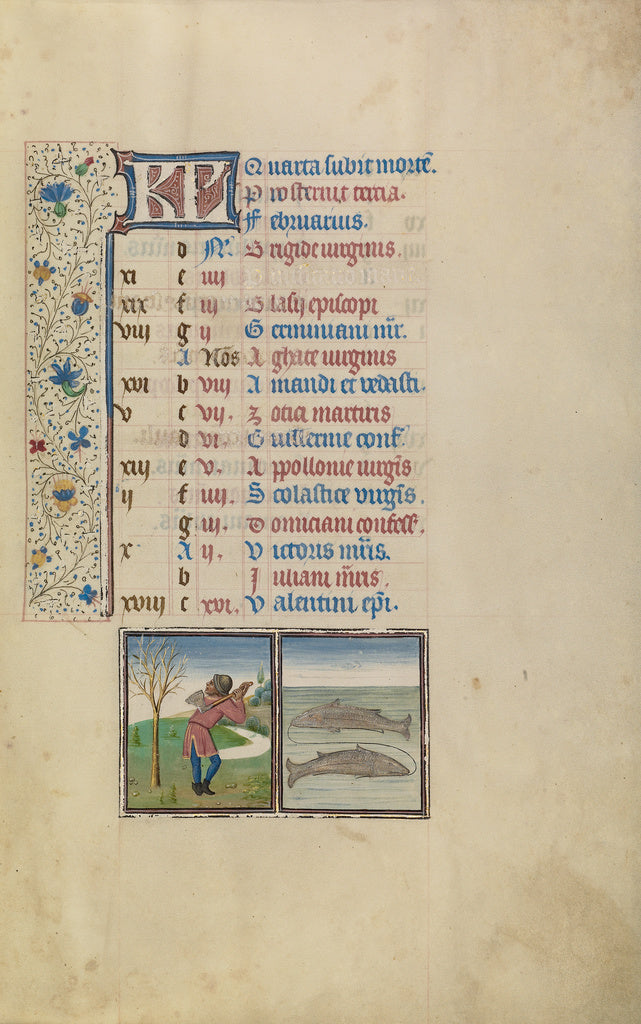 KL Quarta subit mortē.
Prosternit tercia.
Februarius.
d N. Brigide uirginis.
xi e iiij
xix f iij Blasij episcopi
viij g ij Geminiani mr̄.
A Nōs Aghate uirginis
xvi b viij Amandi et vedasti.
v c vij. Zotici martiris
d vi. Guillermi conf
xiij e v. Appollonie uirgīs
ij f iiij. Scolastice virgīs.
g iij. Domiciani confess.
x A ij. Victoris mr̄is.
b Juliani mr̄is.
xviij c xvi. Valentini ep̄i.